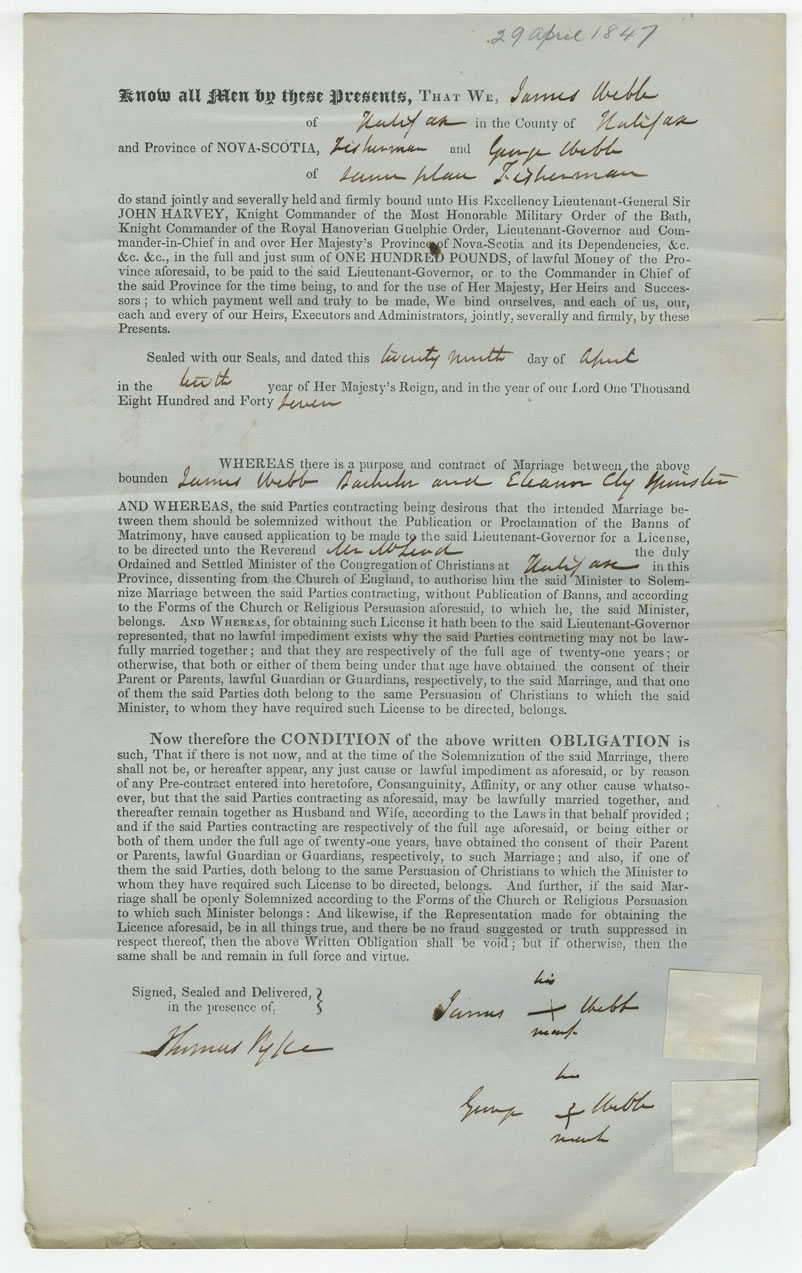 29 April 1847
Know all Men by these Presents, THAT WE, James Webb
of Halifax in the County of Halifax
and Province of NOVA-SCOTIA, Fisherman and George Webb
of same place Fisherman
do stand jointly and severally held and firmly bound unto His Excellency Lieutenant-General Sir
JOHN HARVEY, Knight Commander of the Most Honorable Military Order of the Bath,
Knight Commander of the Royal Hanoverian Guelphic Order, Lieutenant-Governor and Com-
mander-in-Chief in and over Her Majesty's Province of Nova-Scotia and its Dependencies, &c.
&c. &c., in the full and just sum of ONE HUNDRED POUNDS, of lawful Money of the Pro-
vince aforesaid, to be paid to the said Lieutenant-Governor, or to the Commander in Chief of
the said Province for the time being, to and for the use of Her Majesty, Her Heirs and Succes-
sors ; to which payment well and truly to be made, We bind ourselves, and each of us, our,
each and every of our Heirs, Executors and Administrators, jointly, severally and firmly, by these
Presents.
Sealed with our Seals, and dated this twenty ninth day of April
in the tenth year of Her Majesty's Reign, and in the year of our Lord One Thousand
Eight Hundred and Forty seven
WHEREAS there is a purpose and contract of Marriage between the above
bounden James Webb Bachelor and Eleanor Ely Spinster
AND WHEREAS, the said Parties contracting being desirous that the intended Marriage be-
tween them should be solemnized without the Publication or Proclamation of the Banns of
Matrimony, have caused application to be made to the said Lieutenant-Governor for a License,
to be directed unto the Reverend Mr McLeod the duly
Ordained and Settled Minister of the Congregation of Christians at Halifax in this
Province, dissenting from the Church of England, to authorise him the said Minister to Solem-
nize Marriage between the said Parties contracting, without Publication of Banns, and according
to the Forms of the Church or Religious Persuasion aforesaid, to which he, the said Minister,
belongs. AND WHEREAS, for obtaining such License it hath been to the said Lieutenant-Governor
represented, that no lawful impediment exists why the said Parties contracting may not be law-
fully married together ; and that they are respectively of the full age of twenty-one years ; or
otherwise, that both or either of them being under that age have obtained the consent of their
Parent or Parents, lawful Guardian or Guardians, respectively, to the said Marriage, and that one
of them the said Parties doth belong to the same Persuasion of Christians to which the said
Minister, to whom they have required such License to be directed, belongs.
Now therefore the CONDITION of the above written OBLIGATION is
such, That if there is not now, and at the time of the Solemnization of the said Marriage, there
shall not be, or hereafter appear, any just cause or lawful impediment as aforesaid, or by reason
of any Pre-contract entered into heretofore, Consanguinity, Affinity, or any other cause whatso-
ever, but that the said Parties contracting as aforesaid, may be lawfully married together, and
thereafter remain together as Husband and Wife, according to the Laws in that behalf provided ;
and if the said Parties contracting are respectively of the full age aforesaid, or being either or
both of them under the full age of twenty-one years, have obtained the consent of their Parent
or Parents, lawful Guardian or Guardians, respectively, to such Marriage ; and also, if one of
them the said Parties, doth belong to the same Persuasion of Christians to which the Minister to
whom they have required such License to be directed, belongs. And further, if the said Mar-
riage shall be openly Solemnized according to the Forms of the Church or Religious Persuasion
to which such Minister belongs : And likewise, if the Representation made for obtaining the
Licence aforesaid, be in all things true, and there be no fraud suggested or truth suppressed in
respect thereof, then the above Written Obligation shall be void ; but if otherwise, then the
same shall be and remain in full force and virtue.
Signed, Sealed and Delivered,
in the presence of,
Thomas Pyke
his
James + Webb
mark
his
George + Webb
mark